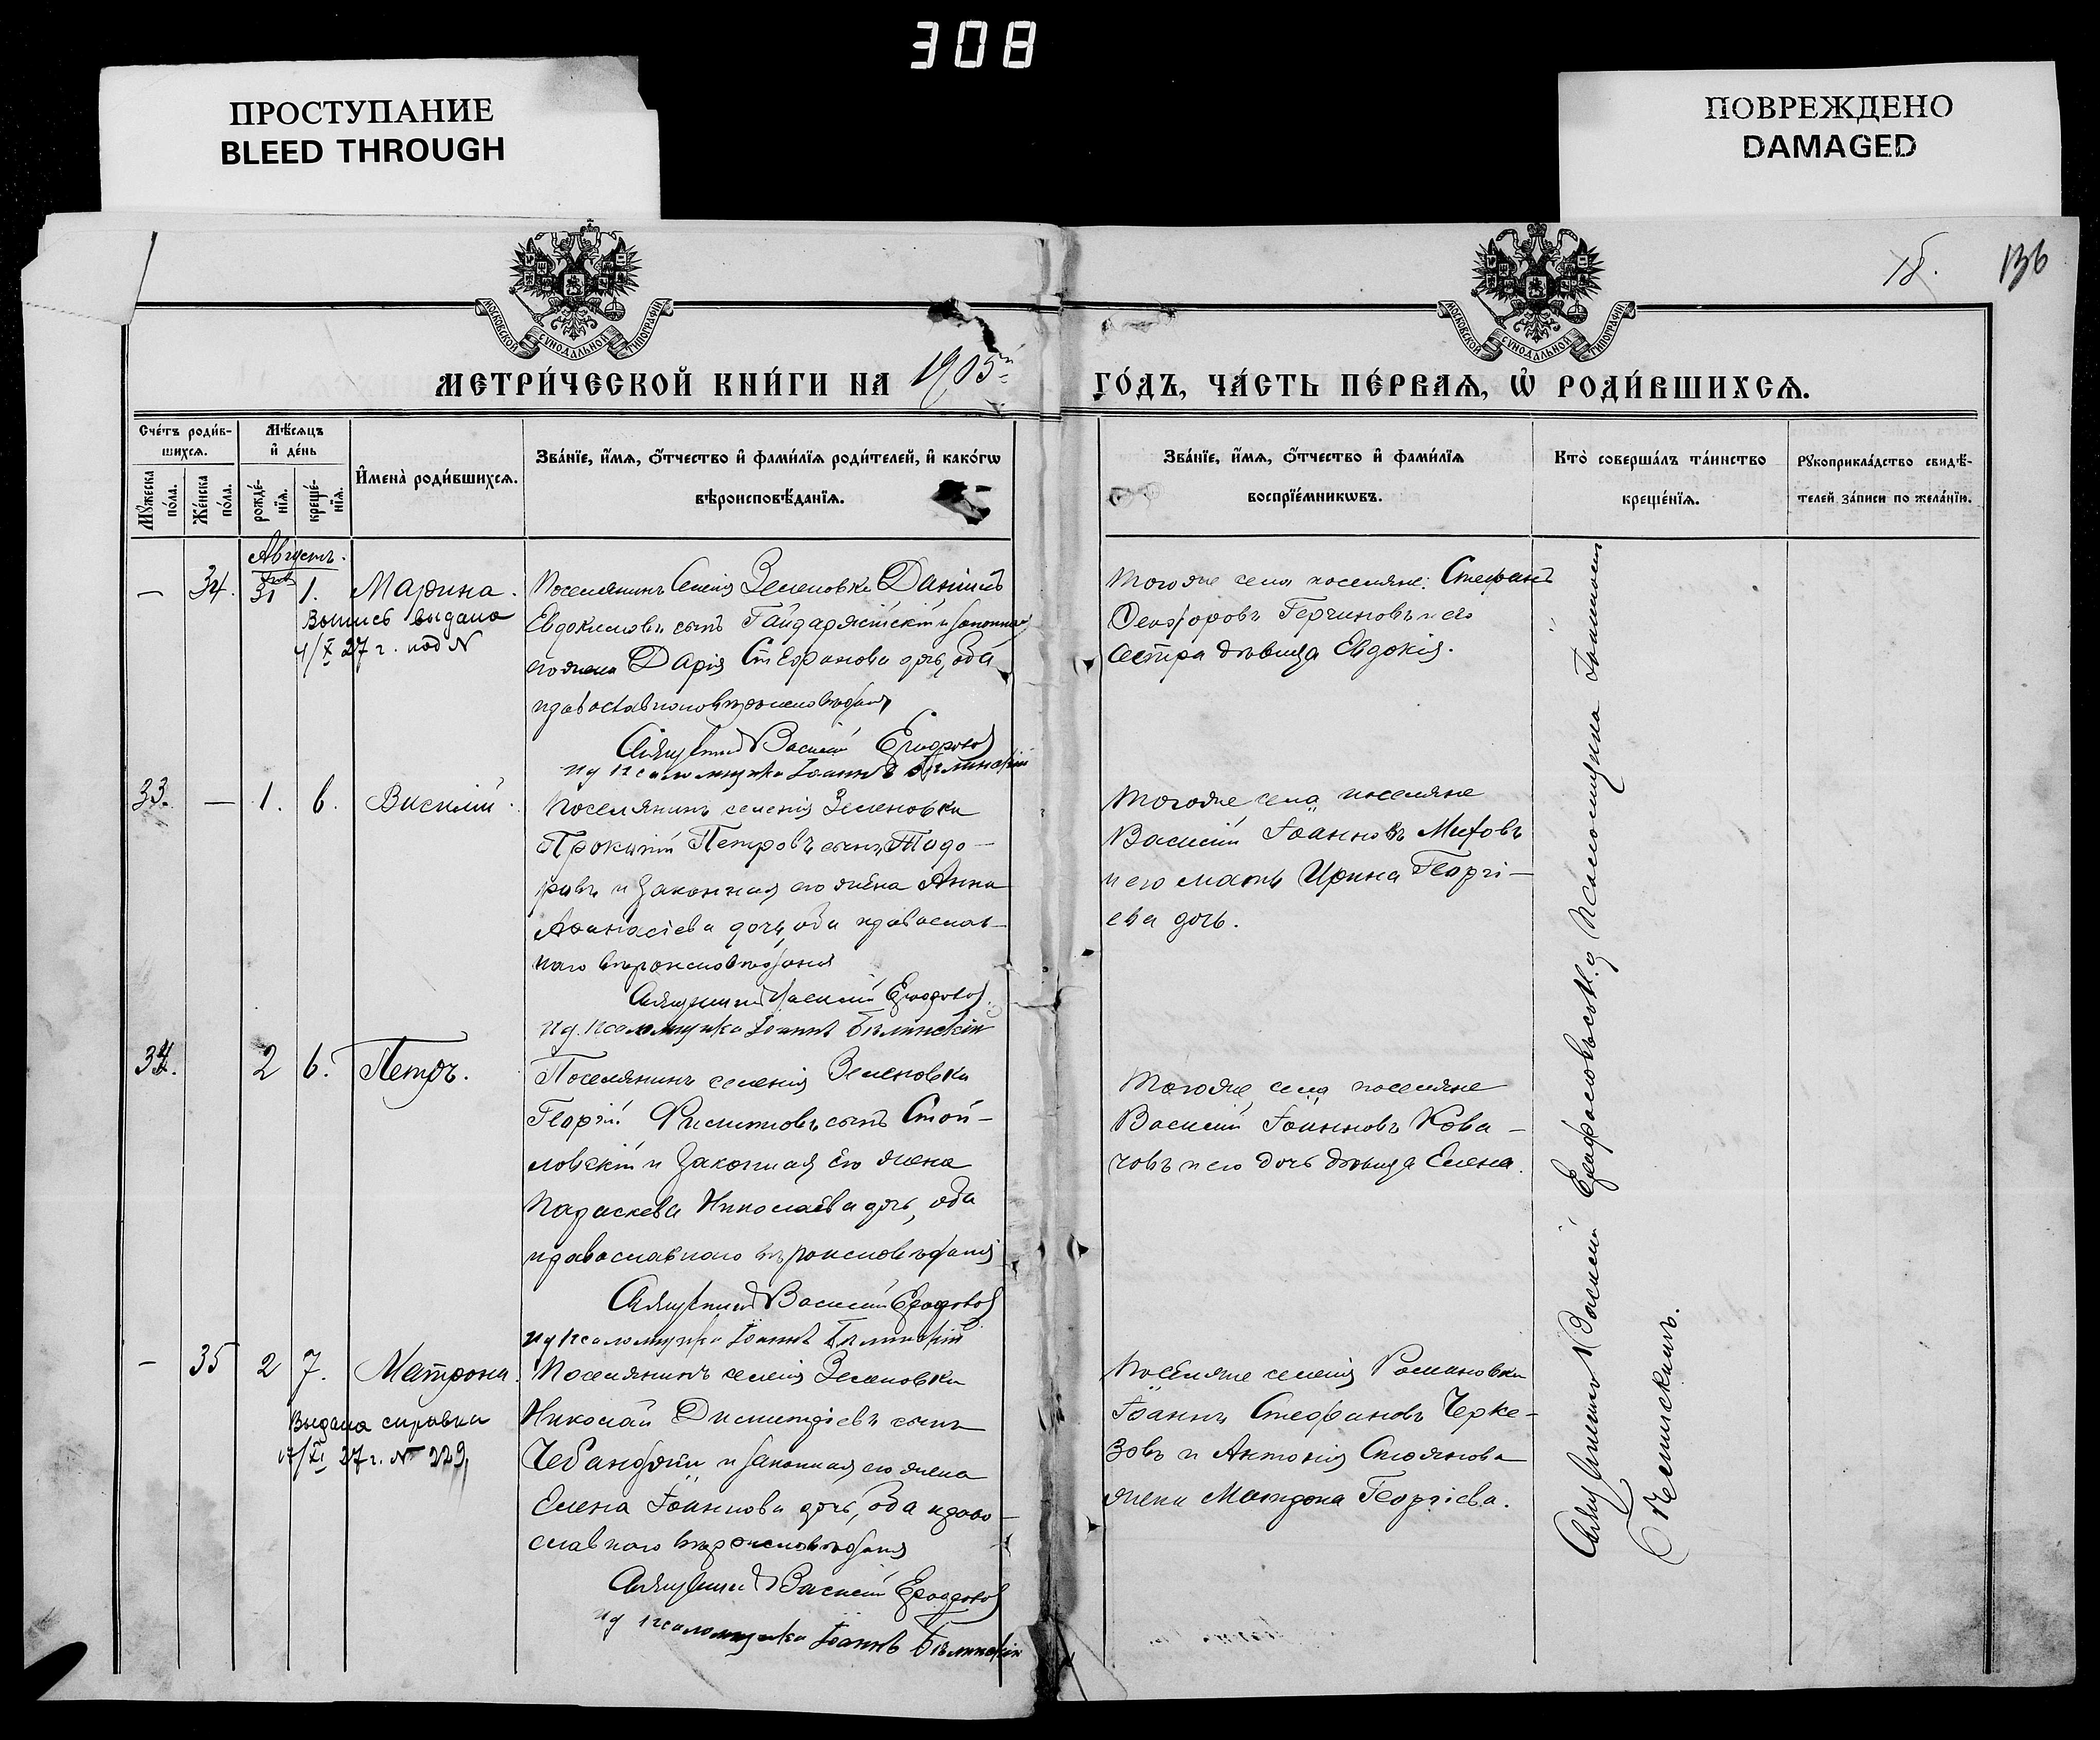 308
ПРОСТУПАНИЕ
BLEED THROUGH
ПОВРЕЖДЕНО
DAMAGED
18.
136
МОСКОВСКОЙ СѴНОДАЛЬНОЙ ТИПОГРАФІИ
МОСКОВСКОЙ СѴНОДАЛЬНОЙ ТИПОГРАФІИ
МЕТРИ́ЧЕСКОЙ КНИ́ГИ НА 1905й
ГО́ДЪ, ЧА́СТЬ ПЕ́РВАѦ, Ѡ҆ РОДИ́ВШИХСѦ.
Сче́тъ роди́в-
шихсѧ.
Мꙋ́жеска по́ла.
Же́нска по́ла.
Мѣ́сѧцъ
и҆ де́нь
рожде́-
нїѧ.
креще́-
нїѧ.
И҆мена̀ роди́вшихсѧ.
Зва́нїе, и҆́мѧ, ѻ҆́тчество и҆ фами́лїѧ роди́телей, и҆ како́гѡ
вѣроисповѣ́данїѧ.
Зва́нїе, и҆́мѧ, ѻ҆́тчество и҆ фами́лїѧ
воспрїе́мникѡвъ.
Кто̀ соверша́лъ та́инство
креще́нїѧ.
Рꙋкоприкла́дство свидѣ́-
телей за́писи по жела́нїю.
Августъ.
— 34. 31 1. Марина.
Выпись выдана
4/X 27 г. под N
Поселянинъ селенія Зеленовки Даніилъ
Евдокимовъ сынъ Гайдаржійскій и законная
его жена Дарія Стефанова дочь, оба
православнаго вѣроисповѣданія
Священникъ Василій
И д псаломщика Іоаннъ Бѣлинскій
Того же села поселяне: Стефанъ
Феодоровъ Герчиновъ и его
сестра дѣвица Евдокія.
33. — 1. 6. Василій.
Поселянинъ селенія Зеленовки
Прокопій Петровъ сынъ Тодо-
ровъ и законная его жена Анна
Афанасіева дочь, оба православ-
наго вѣроисповѣданія
Священникъ Василій
И д. псаломщика Іоаннъ Бѣлинскій
Того же села поселяне
Василій Іоанновъ Митовъ
и его мать Ирина Георгі-
ева дочь.
34. 2 6. Петръ.
Поселянинъ селенія Зеленовки
Георгій Филипповъ сынъ Стой-
ловскій и законная его жена
Параскева Николаева дочь, оба
православнаго вѣроисповѣданія
Священникъ Василій
И д псаломщика Іоаннъ Бѣлинскій
Того же села поселяне
Василій Іоанновъ Кова-
човъ и его дочь дѣвица Елена.
— 35 2 7. Матрона.
Выдана справка
17/XI 27 г. № 229,
Поселянинъ селенія Зеленовки
Николай Димитріевъ сынъ
и законная его жена
Елена Іоаннова дочь, оба право-
славнаго вѣроисповѣданія
Священникъ Василій
И д псаломщика Іоаннъ Бѣлинскій
Поселяне селенія Романовки
Іоаннъ Стефановъ Черке-
зовъ и Антонія Стоянова
жена Матрона Георгіева.
Священникъ Василій съ И. д. Псаломщика Іоанномъ
Бѣлинскимъ.